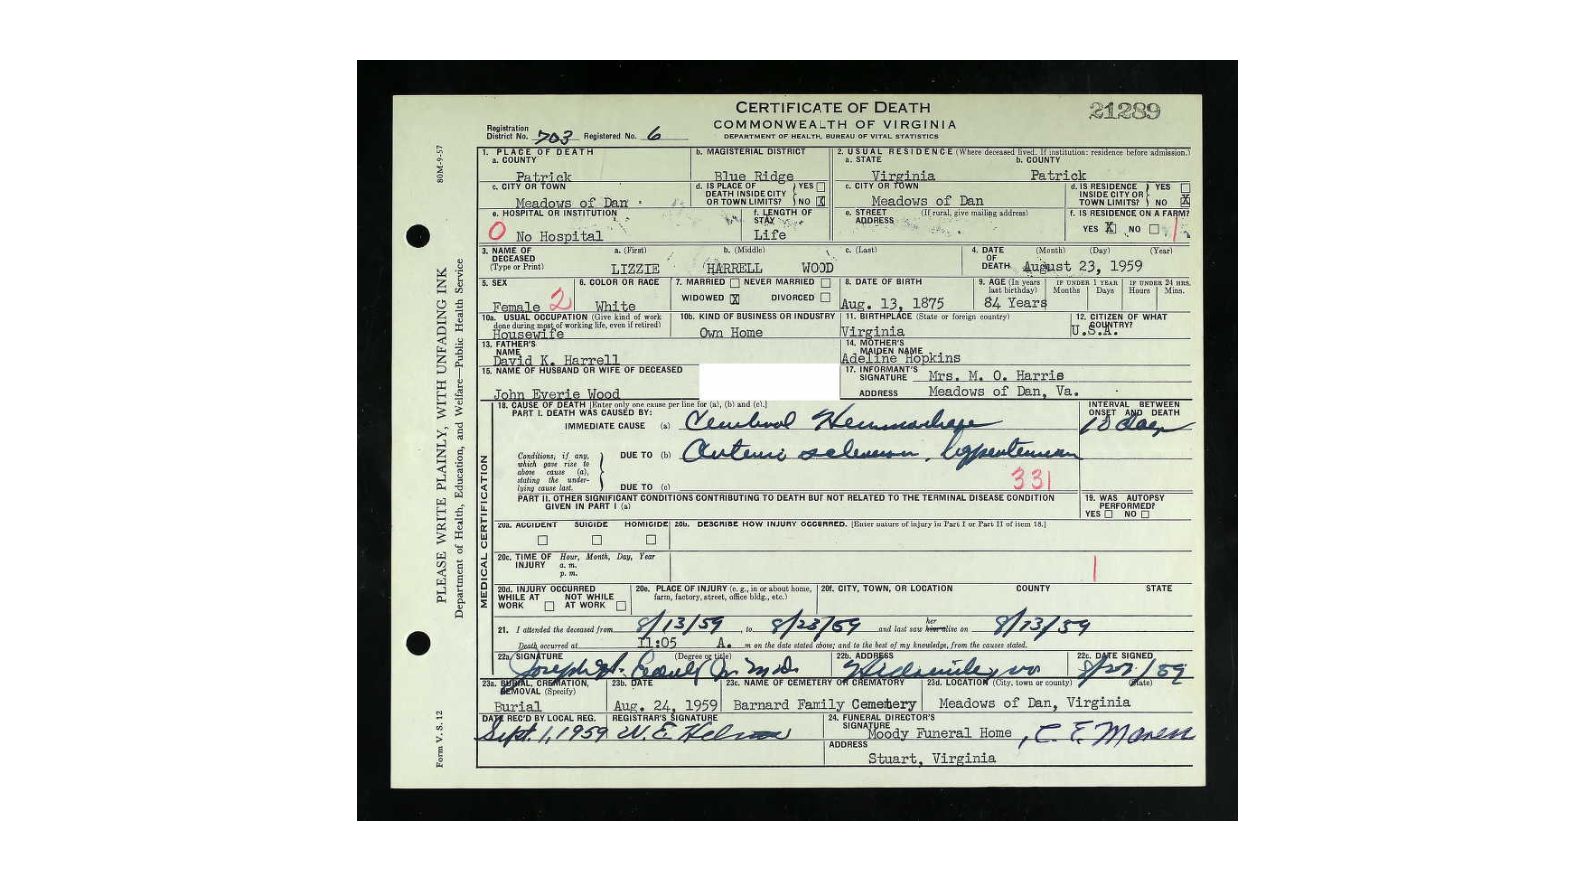 CERTIFICATE OF DEATH
21289
COMMONWEALTH OF VIRGINIA
DEPARTMENT OF HEALTH, BUREAU OF VITAL STATISTICS
Registration District No. 703 Registered No. 6
80M-9-57
PLEASE WRITE PLAINLY, WITH UNFADING INK
Department of Health, Education, and Welfare—Public Health Service
Form V. S. 12
1. PLACE OF DEATH
a. COUNTY
Patrick
b. MAGISTERIAL DISTRICT
Blue Ridge
2. USUAL RESIDENCE (Where deceased lived. If institution: residence before admission.)
a. STATE
Virginia
b. COUNTY
Patrick
c. CITY OR TOWN
Meadows of Dan
d. IS PLACE OF DEATH INSIDE CITY OR TOWN LIMITS? YES NO X
c. CITY OR TOWN
Meadows of Dan
d. IS RESIDENCE INSIDE CITY OR TOWN LIMITS? YES NO X
e. HOSPITAL OR INSTITUTION
0 No Hospital
f. LENGTH OF STAY
Life
e. STREET ADDRESS (If rural, give mailing address)
f. IS RESIDENCE ON A FARM?
YES X NO 1
3. NAME OF DECEASED (Type or Print)
a. (First) b. (Middle) c. (Last)
LIZZIE HARRELL WOOD
4. DATE OF DEATH (Month) (Day) (Year)
August 23, 1959
5. SEX
Female 2
6. COLOR OR RACE
White
7. MARRIED NEVER MARRIED
WIDOWED X DIVORCED
8. DATE OF BIRTH
Aug. 13, 1875
9. AGE (In years last birthday)
84 Years
IF UNDER 1 YEAR Months Days
IF UNDER 24 HRS. Hours Mins.
10a. USUAL OCCUPATION (Give kind of work done during most of working life, even if retired)
Housewife
10b. KIND OF BUSINESS OR INDUSTRY
Own Home
11. BIRTHPLACE (State or foreign country)
Virginia
12. CITIZEN OF WHAT COUNTRY?
U.S.A.
13. FATHER'S NAME
David K. Harrell
14. MOTHER'S MAIDEN NAME
Adeline Hopkins
15. NAME OF HUSBAND OR WIFE OF DECEASED
John Everie Wood
17. INFORMANT'S SIGNATURE Mrs. M. O. Harris
ADDRESS Meadows of Dan, Va.
18. CAUSE OF DEATH [Enter only one cause per line for (a), (b) and (c).]
INTERVAL BETWEEN ONSET AND DEATH
PART I. DEATH WAS CAUSED BY:
IMMEDIATE CAUSE (a) Cerebral Hemmorhage 10 days
Conditions, if any, which gave rise to above cause (a), stating the underlying cause last.
DUE TO (b) hypertension
DUE TO (c) 331
PART II. OTHER SIGNIFICANT CONDITIONS CONTRIBUTING TO DEATH BUT NOT RELATED TO THE TERMINAL DISEASE CONDITION GIVEN IN PART I (a)
19. WAS AUTOPSY PERFORMED?
YES NO
MEDICAL CERTIFICATION
20a. ACCIDENT SUICIDE HOMICIDE
20b. DESCRIBE HOW INJURY OCCURRED. [Enter nature of injury in Part I or Part II of item 18.]
20c. TIME OF INJURY Hour, Month, Day, Year
a. m.
p. m.
1
20d. INJURY OCCURRED
WHILE AT WORK NOT WHILE AT WORK
20e. PLACE OF INJURY (e. g., in or about home, farm, factory, street, office bldg., etc.)
20f. CITY, TOWN, OR LOCATION COUNTY STATE
21. I attended the deceased from 8/13/59, to 8/23/59 and last saw her alive on 8/13/59
Death occurred at 11:05 A. m on the date stated above; and to the best of my knowledge, from the causes stated.
22a. SIGNATURE (Degree or title)
Joseph M.D.
22b. ADDRESS
22c. DATE SIGNED
8/27/59
23a. BURIAL, CREMATION, REMOVAL (Specify)
Burial
23b. DATE
Aug. 24, 1959
23c. NAME OF CEMETERY OR CREMATORY
Barnard Family Cemetery
23d. LOCATION (City, town or county) (State)
Meadows of Dan, Virginia
DATE REC'D BY LOCAL REG.
Sept. 1, 1959
REGISTRAR'S SIGNATURE
W. E.
24. FUNERAL DIRECTOR'S SIGNATURE
Moody Funeral Home, C. E.
ADDRESS
Stuart, Virginia